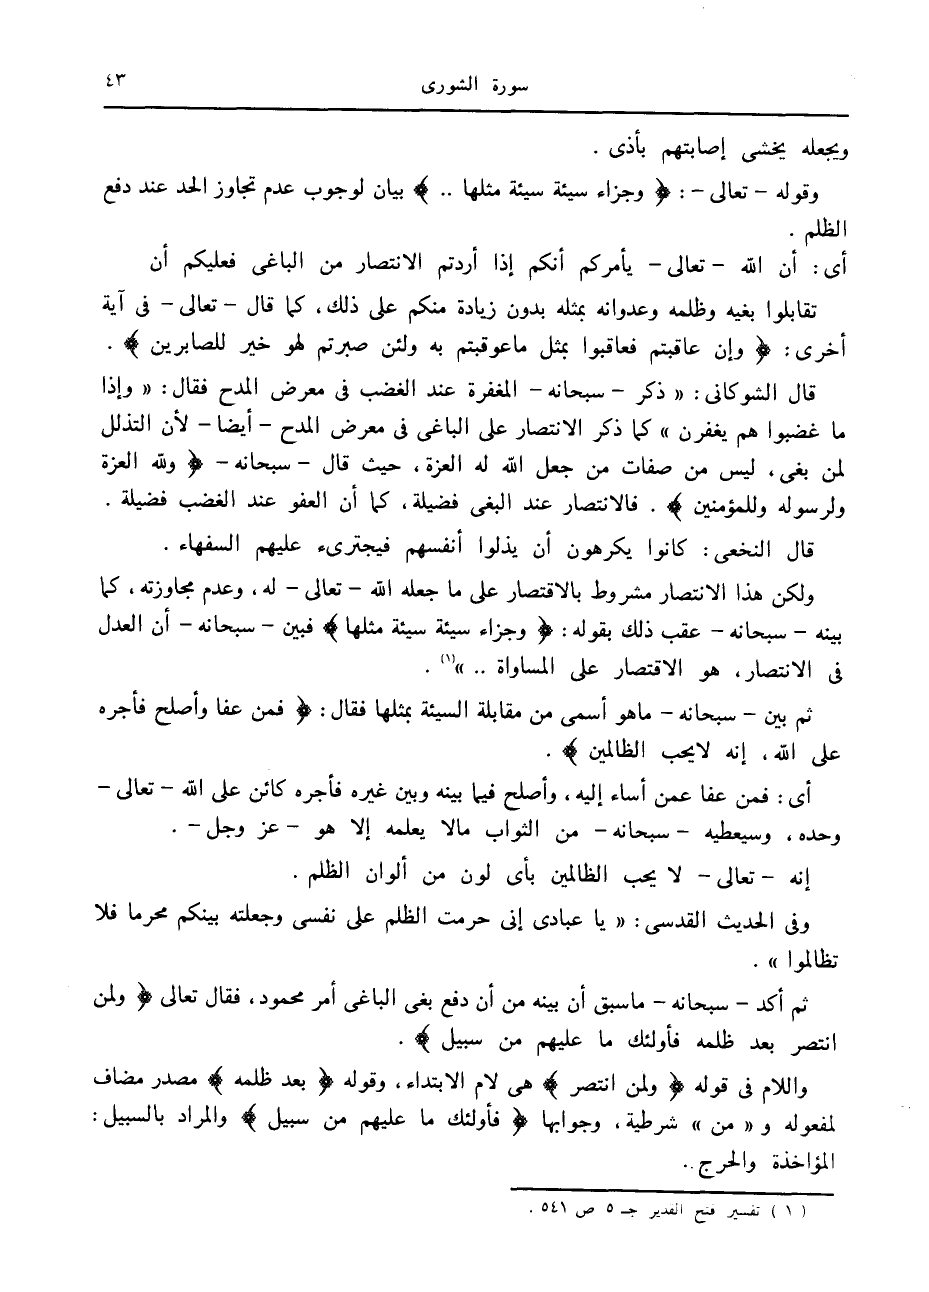 سورة الشورى ٤٣
ويجعله يخشى إصابتهم بأذى .
وقوله - تعالى - : ﴿ وجزاء سيئة سيئة مثلها .. ﴾ بيان لوجوب عدم تجاوز الحد عند دفع
الظلم .
أى : أن الله - تعالى - يأمركم أنكم إذا أردتم الانتصار من الباغى فعليكم أن
تقابلوا بغيه وظلمه وعدوانه بمثله بدون زيادة منكم على ذلك ، كما قال - تعالى - فى آية
أخرى : ﴿ وإن عاقبتم فعاقبوا بمثل ماعوقبتم به ولئن صبرتم لهو خير للصابرين ﴾ .
قال الشوكانى : « ذكر - سبحانه - المغفرة عند الغضب فى معرض المدح فقال : « وإذا
ما غضبوا هم يغفرن » كما ذكر الانتصار على الباغى فى معرض المدح - أيضا - لأن التذلل
لمن بغى ، ليس من صفات من جعل الله له العزة ، حيث قال - سبحانه - ﴿ ولله العزة
ولرسوله وللمؤمنين ﴾ . فالانتصار عند البغى فضيلة ، كما أن العفو عند الغضب فضيلة .
قال النخعى : كانوا يكرهون أن يذلوا أنفسهم فيجترىء عليهم السفهاء .
ولكن هذا الانتصار مشروط بالاقتصار على ما جعله الله - تعالى - له ، وعدم مجاوزته ، كما
بينه - سبحانه - عقب ذلك بقوله : ﴿ وجزاء سيئة سيئة مثلها ﴾ فبين - سبحانه - أن العدل
فى الانتصار ، هو الاقتصار على المساواة .. »(١) .
ثم بين - سبحانه - ماهو أسمى من مقابلة السيئة بمثلها فقال : ﴿ فمن عفا وأصلح فأجره
على الله ، إنه لايحب الظالمين ﴾ .
أى : فمن عفا عمن أساء إليه ، وأصلح فيما بينه وبين غيره فأجره كائن على الله - تعالى -
وحده ، وسيعطيه - سبحانه - من الثواب مالا يعلمه إلا هو - عز وجل - .
إنه - تعالى - لا يحب الظالمين بأى لون من ألوان الظلم .
وفى الحديث القدسى : « يا عبادى إنى حرمت الظلم على نفسى وجعلته بينكم محرما فلا
تظالموا » .
ثم أكد - سبحانه - ماسبق أن بينه من أن دفع بغى الباغى أمر محمود ، فقال تعالى ﴿ ولمن
انتصر بعد ظلمه فأولئك ما عليهم من سبيل ﴾ .
واللام فى قوله ﴿ ولمن انتصر ﴾ هى لام الابتداء ، وقوله ﴿ بعد ظلمه ﴾ مصدر مضاف
لمفعوله و « من » شرطية ، وجوابها ﴿ فأولئك ما عليهم من سبيل ﴾ والمراد بالسبيل :
المؤاخذة والحرج ..
( ١ ) تفسير فتح القدير جـ ٥ ص ٥٤١ .